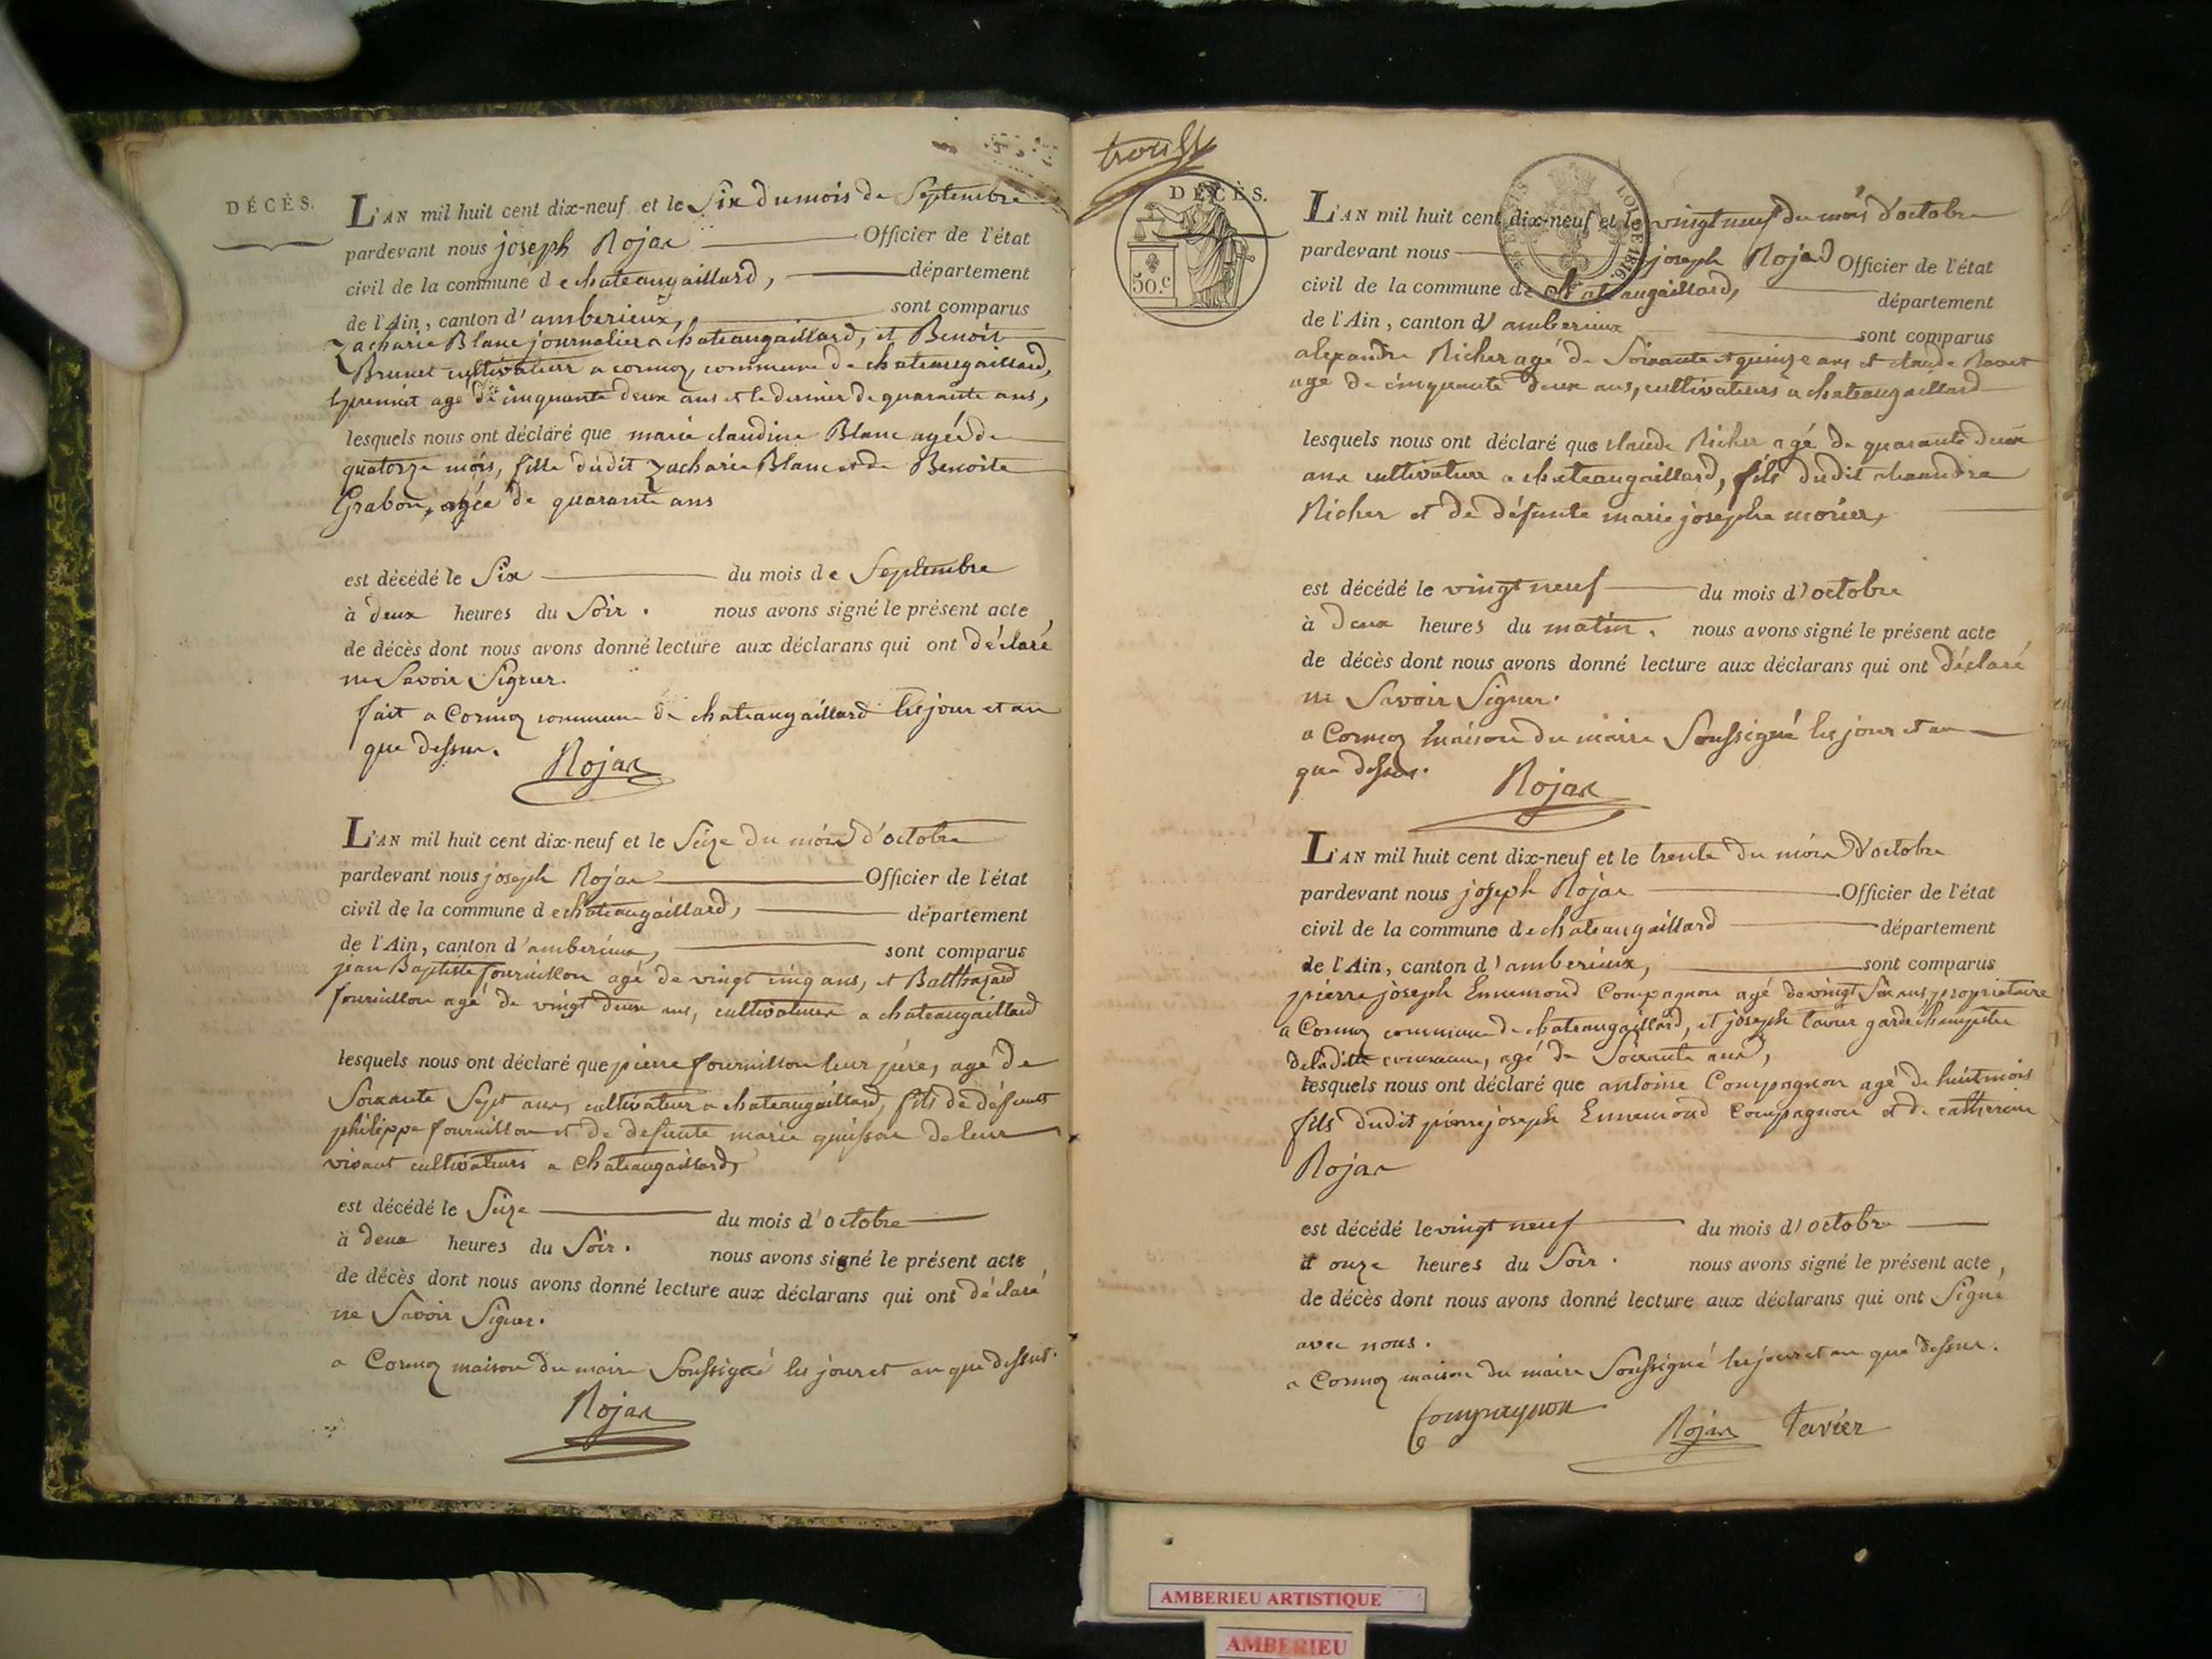 DÉCÈS.
L'AN mil huit cent dix-neuf et le Six du mois de Septembre
pardevant nous joseph Rojax Officier de l'état
civil de la commune de chateaugaillard, département
de l'Ain, canton d'amberieux, sont comparus
Zacharie Blanc journalier a chateaugaillard, et Benoit
Brunet cultivateur a cormoz, commune de chateaugaillard,
le premier agé de cinquante deux ans et le dernier de quarante ans,
lesquels nous ont déclaré que marie claudine Blanc agée de
quatorze mois, fille dudit Zacharie Blanc et de Benoite
Grabon, agée de quarante ans
est décédé le Six du mois de Septembre
à deux heures du Soir. nous avons signé le présent acte,
de décès dont nous avons donné lecture aux déclarans qui ont déclaré
ne Savoir Signer.
fait a Cormoz commune de chateaugaillard les jour et an
que dessus.
Rojax
L'AN mil huit cent dix-neuf et le Seize du mois d'octobre
pardevant nous joseph Rojax Officier de l'état
civil de la commune de chateaugaillard, département
de l'Ain, canton d'amberieux, sont comparus
jean Baptiste fournillon agé de vingt cinq ans, et Balthazard
fournillon agé de vingt deux ans, cultivateurs a chateaugaillard
lesquels nous ont déclaré que pierre fournillon leur père, agé de
Soixante Sept ans, cultivateur a chateaugaillard, fils de défunt
philippe fournillon et de defunte marie quisson de leur
vivant cultivateurs a Chateaugaillard,
est décédé le Seize du mois d'octobre
à deux heures du Soir. nous avons signé le présent acte
de décès dont nous avons donné lecture aux déclarans qui ont déclaré
ne Savoir Signer.
a Cormoz maison du maire Soussigné les jour et an que dessus.
Rojax
DÉCÈS.
50.c
LOI DE 1816.
L'AN mil huit cent dix-neuf et le vingt neuf du mois d'octobre
pardevant nous joseph Rojax Officier de l'état
civil de la commune de chateaugaillard, département
de l'Ain, canton d'amberieux sont comparus
alexandre Richer agé de Soixante et quinze ans et claude
agé de cinquante deux ans, cultivateurs a chateaugaillard
lesquels nous ont déclaré que claude Richer agé de quarante deux
ans cultivateur a chateaugaillard, fils dudit alexandre
Richer et de défunte marie josephe morier,
est décédé le vingt neuf du mois d'octobre
à Deux heures du matin. nous avons signé le présent acte
de décès dont nous avons donné lecture aux déclarans qui ont déclaré
ne Savoir Signer.
a Cormoz maison du maire Soussigné les jour et an
que dessus.
Rojax
L'AN mil huit cent dix-neuf et le trente du mois d'octobre
pardevant nous joseph Rojax Officier de l'état
civil de la commune de chateaugaillard département
de l'Ain, canton d'amberieux, sont comparus
pierre joseph Ennemond Compagnon agé de vingt Six ans, propriétaire
a Cormoz commune de chateaugaillard, et joseph tavier garde champêtre
de ladite commune, agé de Soixante ans,
lesquels nous ont déclaré que antoine Compagnon agé de huit mois
fils dudit pierre joseph Ennemond Compagnon et de catherine
Rojax
est décédé le vingt neuf du mois d'octobre
à onze heures du Soir. nous avons signé le présent acte,
de décès dont nous avons donné lecture aux déclarans qui ont Signé
avec nous.
a Cormoz maison du maire Soussigné les jour et an que dessus.
Compagnon
Rojax Tavier
AMBERIEU ARTISTIQUE
AMBERIEU